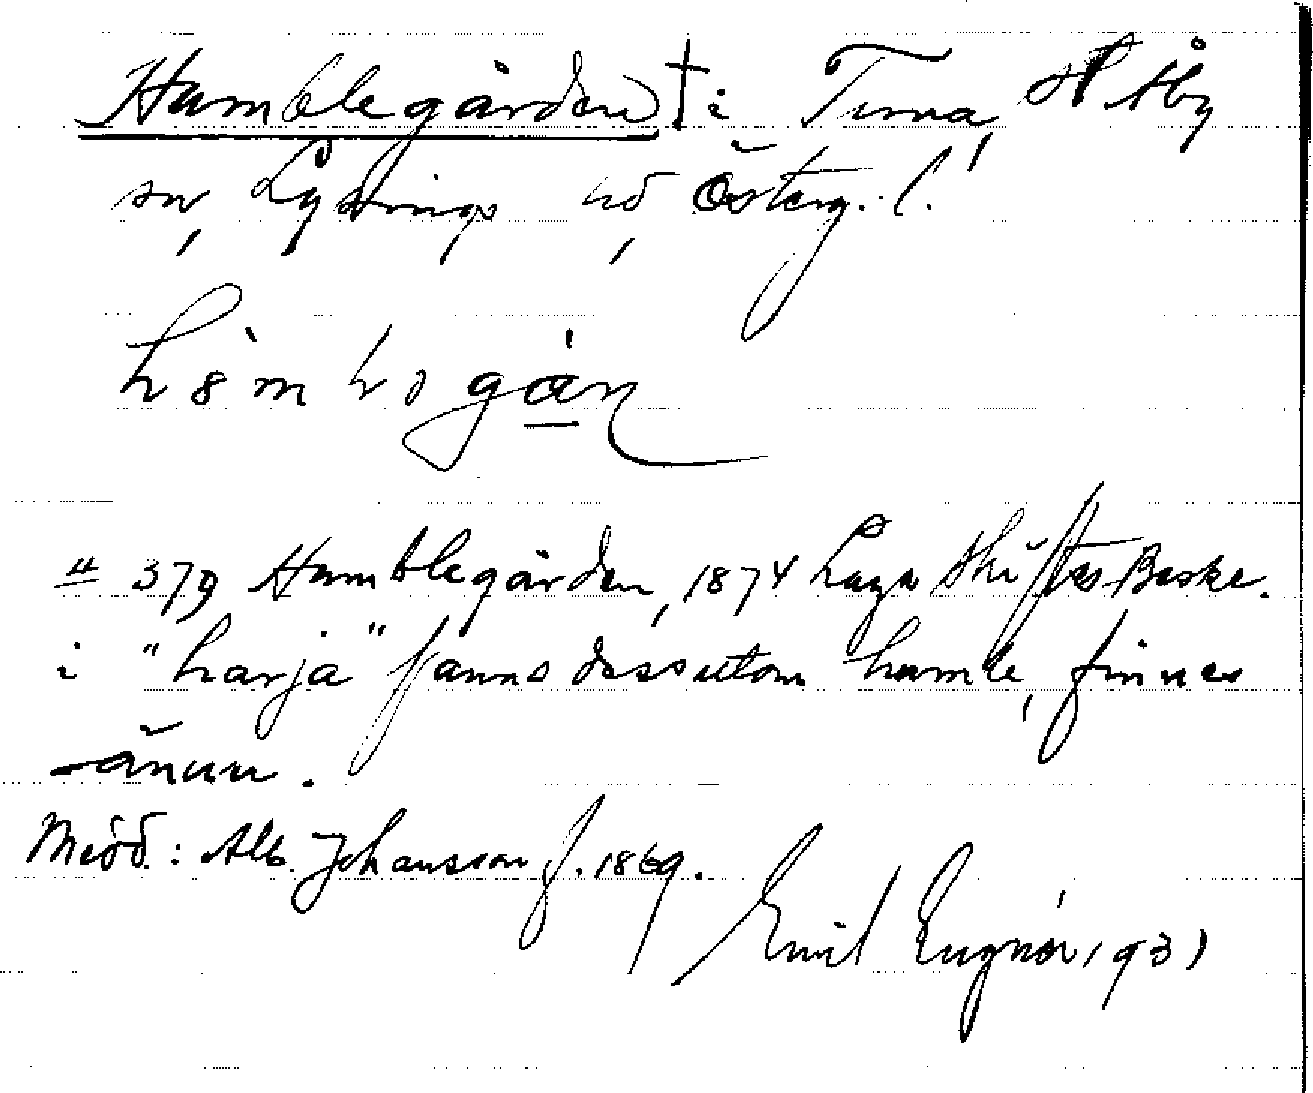 Humblegården † i Turna, V Åby
sn, Lysings hd, Österg. l.
379 Humblegården, 1874 Laga Skiftes Beskr.
i "harja" fanns dessutom humle, finnes
ännu.
Medd.: Alb. Johansson f. 1869.
Emil 1931